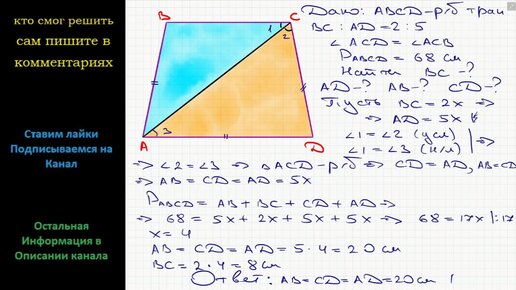 кто смог решить
сам пишите в
комментариях
Ставим лайки
Подписываемся на
Канал
Остальная
Информация в
Описании канала
B
C
1
2
3
A
D
Дано: ABCD-р/б трап
BC : AD = 2 : 5
∠ ACD = ∠ ACB
P ABCD = 68 см
Найти BC -?
AD-? AB-? CD-?
Пусть BC = 2x ⇒
⇒ AD = 5x
∠1 = ∠2 (усл)
∠1 = ∠3 (н/л)
⇒ ∠2 = ∠3 ⇒ △ACD-р/б ⇒ CD = AD, AB=CD
⇒ AB = CD = AD = 5x
P ABCD = AB + BC + CD + AD ⇒
⇒ 68 = 5x + 2x + 5x + 5x ⇒ 68 = 17x |:17
x = 4
AB = CD = AD = 5 · 4 = 20 см
BC = 2 · 4 = 8 см
Ответ: AB = CD = AD = 20 см